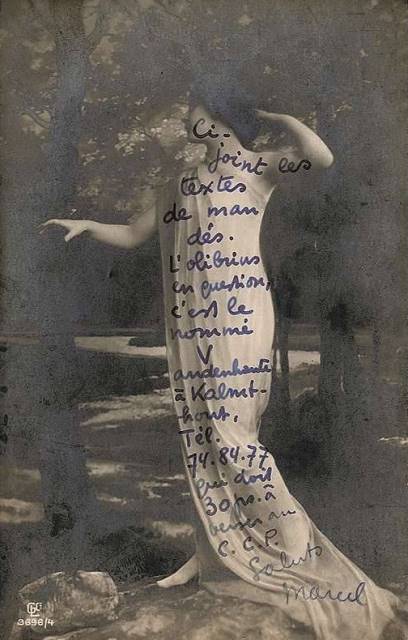 Ci-
joint les
textes
de man
dés.
L'olibrius
en question,
c'est le
nommé
V
andenhaute
à Kalmt-
hout,
Tél.
74.84.77
qui doit
30 frs. à
verser au
C.C.P.
Saluts
Marcel
3696/4